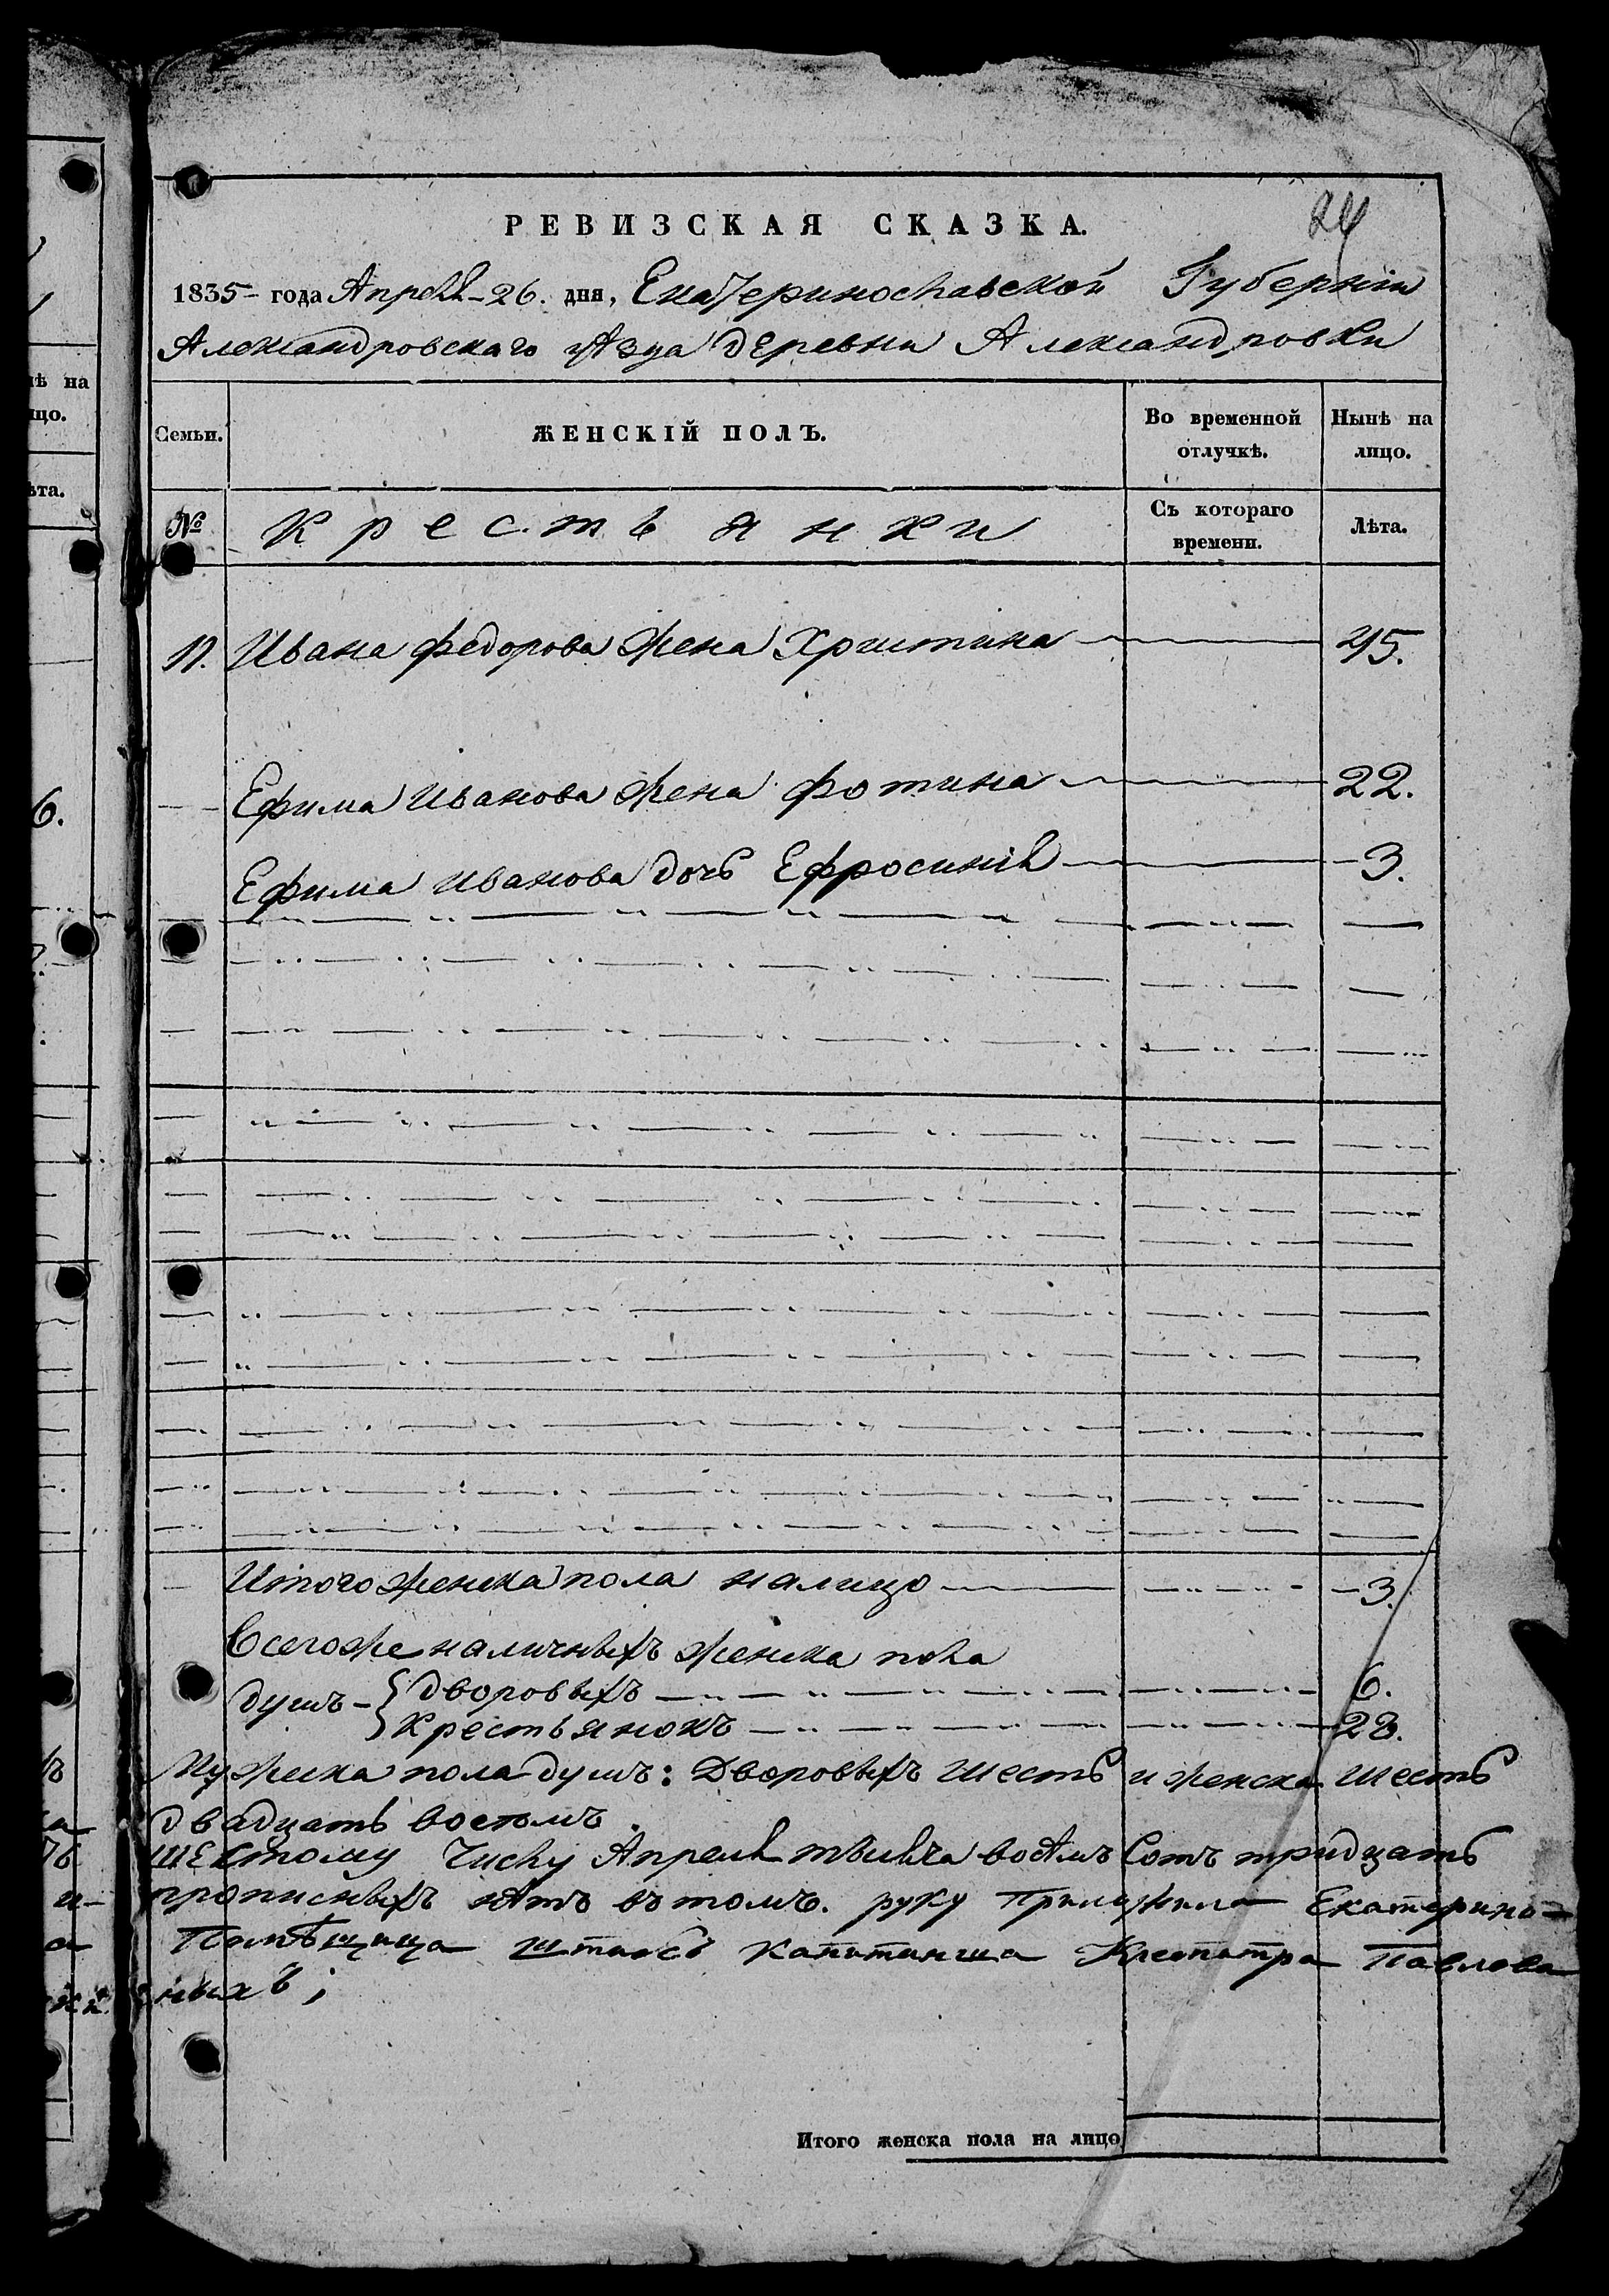 24
РЕВИЗСКАЯ СКАЗКА.
1835 года Апреля 26. дня, Екатеринославской Губерніи
Александровскаго уѣзда деревни Александровки
Семьи. ЖЕНСКІЙ ПОЛЪ. Во временной отлучкѣ. Нынѣ на лицо.
№ Крестьянки Съ котораго времени. Лѣта.
11. Ивана Федорова Жена Христина 45.
Ефима Иванова Жена Фотина 22.
Ефима Иванова дочь Ефросинія 3.
Итого женска пола налицо 3.
Всегоже наличныхъ женска пола
душъ { дворовыхъ 6.
Крестьянокъ 28.
Мужска пола душъ: Дворовыхъ шесть и женска шесть
двадцать восемъ.
шестому Числу Апреля тысяча восѣмъ Сотъ тридцать
прописныхъ нѣтъ въ томъ. руку приложила Екатерино=
Помѣщица штабсъ Капитанша Клеопатра Павлова
ныхъ;
Итого женска пола на лицо
нѣ на
ицо.
ѣта.
6.